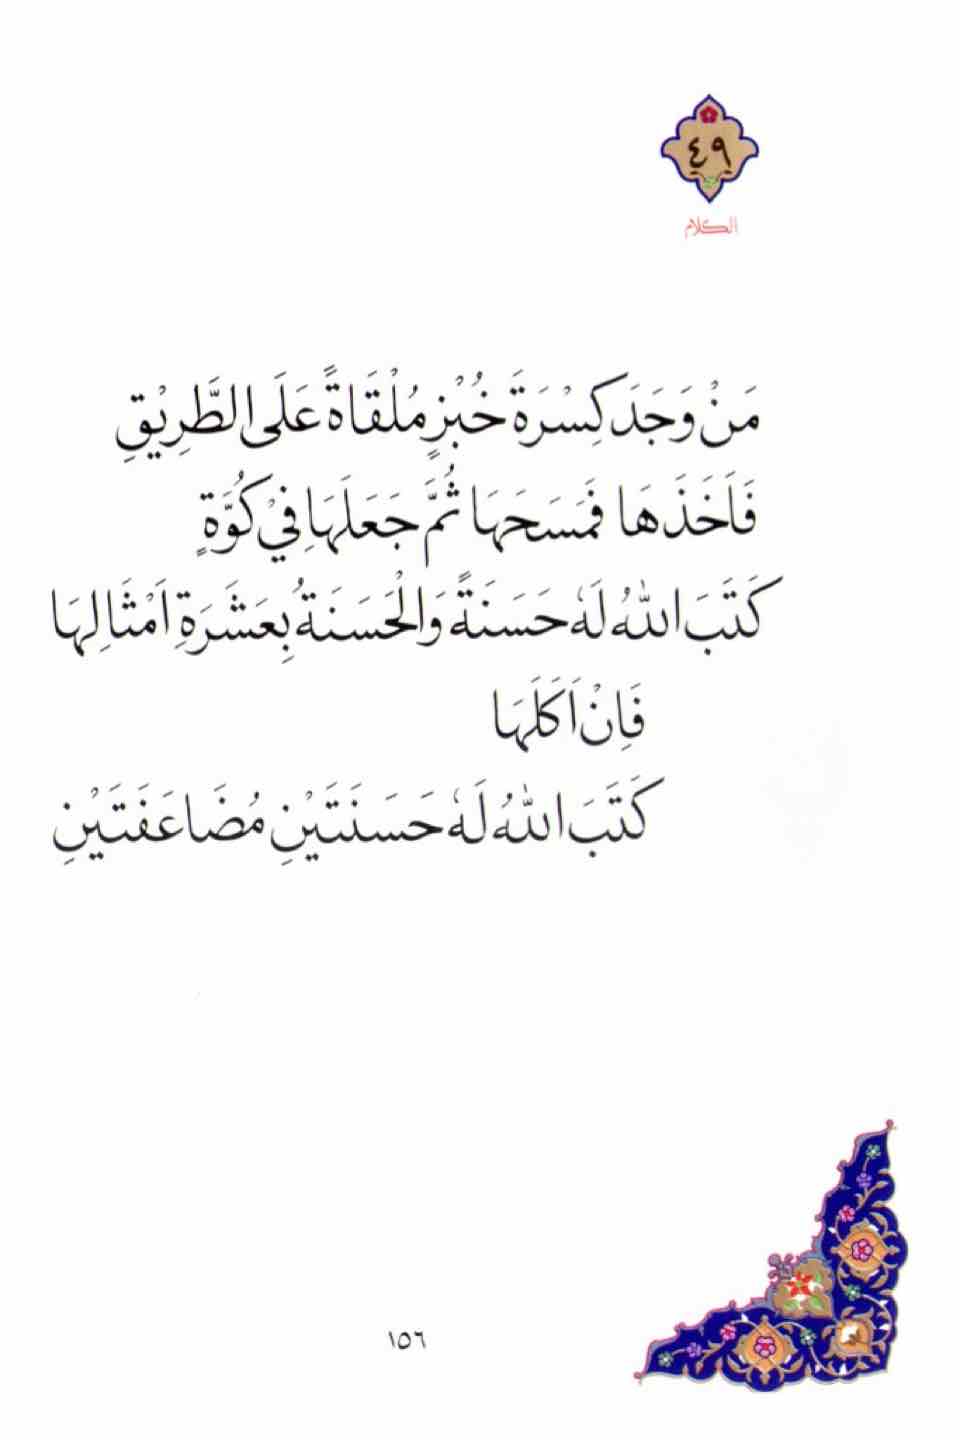 ٤٩
الكلام
مَنْ وَجَدَ كِسْرَةَ خُبْزٍ مُلْقَاةً عَلَى الطَّرِيْقِ
فَاَخَذَهَا فَمَسَحَهَا ثُمَّ جَعَلَهَا فِيْ كُوَّةٍ
كَتَبَ اللهُ لَهٗ حَسَنَةً وَالْحَسَنَةُ بِعَشَرَةِ اَمْثَالِهَا
فَاِنْ اَكَلَهَا
كَتَبَ اللهُ لَهٗ حَسَنَتَيْنِ مُضَاعَفَتَيْنِ
١٥٦